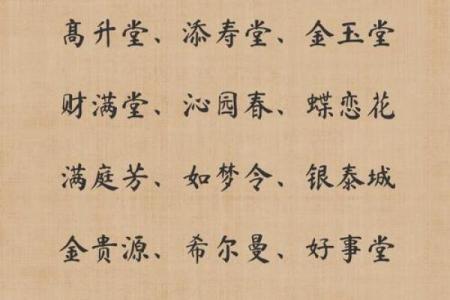 高升堂、添寿堂、金玉堂
财满堂、沁园春、蝶恋花
满庭芳、如梦令、银泰城
金贵源、希尔曼、好事堂